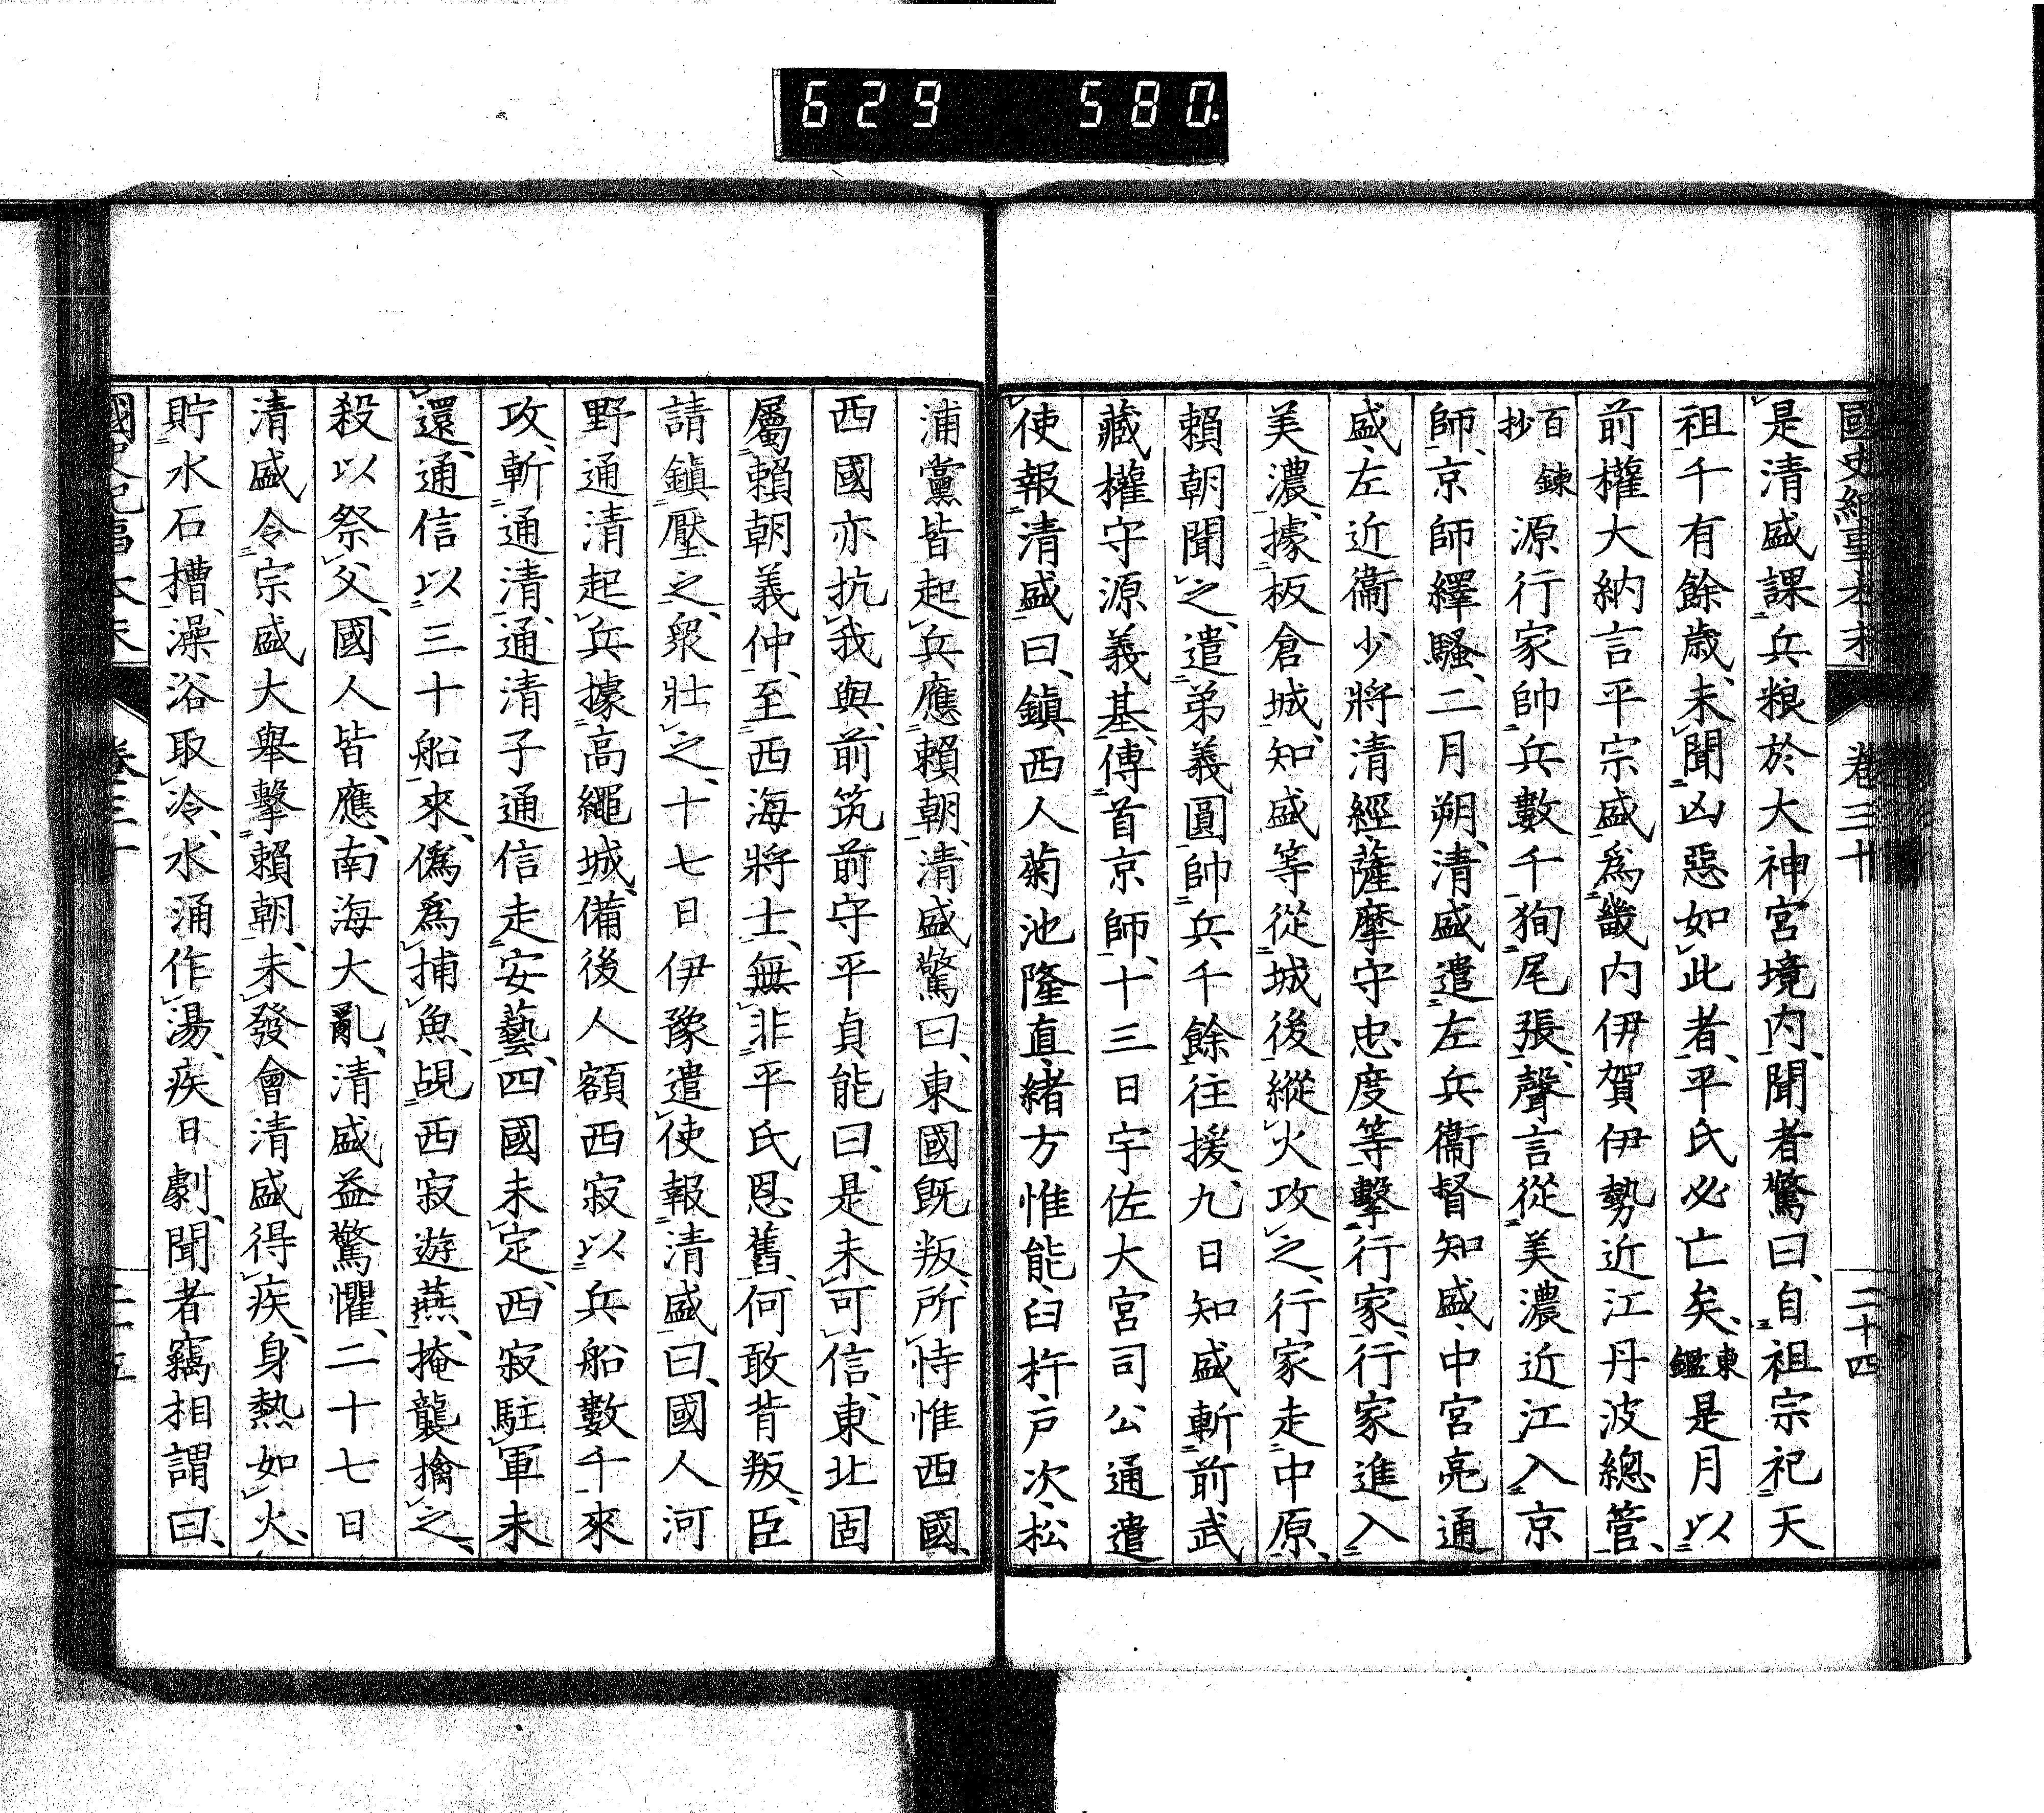 629 580
國史紀事本末 卷三十 二十四
是清盛課兵粮於大神宮境内、聞者驚曰、自祖宗祀天
祖千有餘歳、未聞凶惡如此者、平氏必亡矣、東鑑是月以
前權大納言平宗盛爲畿内伊賀伊勢近江丹波總管、
百鍊抄源行家帥兵數千狥尾張、聲言從美濃近江入京
師、京師繹騷、二月朔、清盛遣左兵衞督知盛、中宮亮通
盛、左近衞少將清經、薩摩守忠度等擊行家、行家進入
美濃、據板倉城、知盛等從城後縱火攻之、行家走中原、
賴朝聞之、遣弟義圓帥兵千餘往援、九日知盛斬前武
藏權守源義基、傳首京師、十三日宇佐大宮司公通遣
使報清盛曰、鎮西人菊池隆直、緒方惟能、臼杵、戸次、松
浦黨皆起兵應賴朝、清盛驚曰、東國既叛、所恃惟西國、
西國亦抗我與、前筑前守平貞能曰、是未可信、東北固
屬賴朝義仲、至西海將士、無非平氏恩舊、何敢背叛、臣
請鎮壓之、衆壯之、十七日伊豫遣使報清盛曰、國人河
野通清起兵據高繩城、備後人額西寂以兵船數千來
攻、斬通清、通清子通信走安藝、四國未定、西寂駐軍未
還、通信以三十船來、僞爲捕魚、覘西寂遊燕、掩襲擒之、
殺以祭父、國人皆應、南海大亂、清盛益驚懼、二十七日
清盛令宗盛大舉擊賴朝、未發會清盛得疾、身熱如火、
貯水石槽、澡浴取冷、水涌作湯、疾日劇、聞者竊相謂曰、
國史紀事本末 卷三十